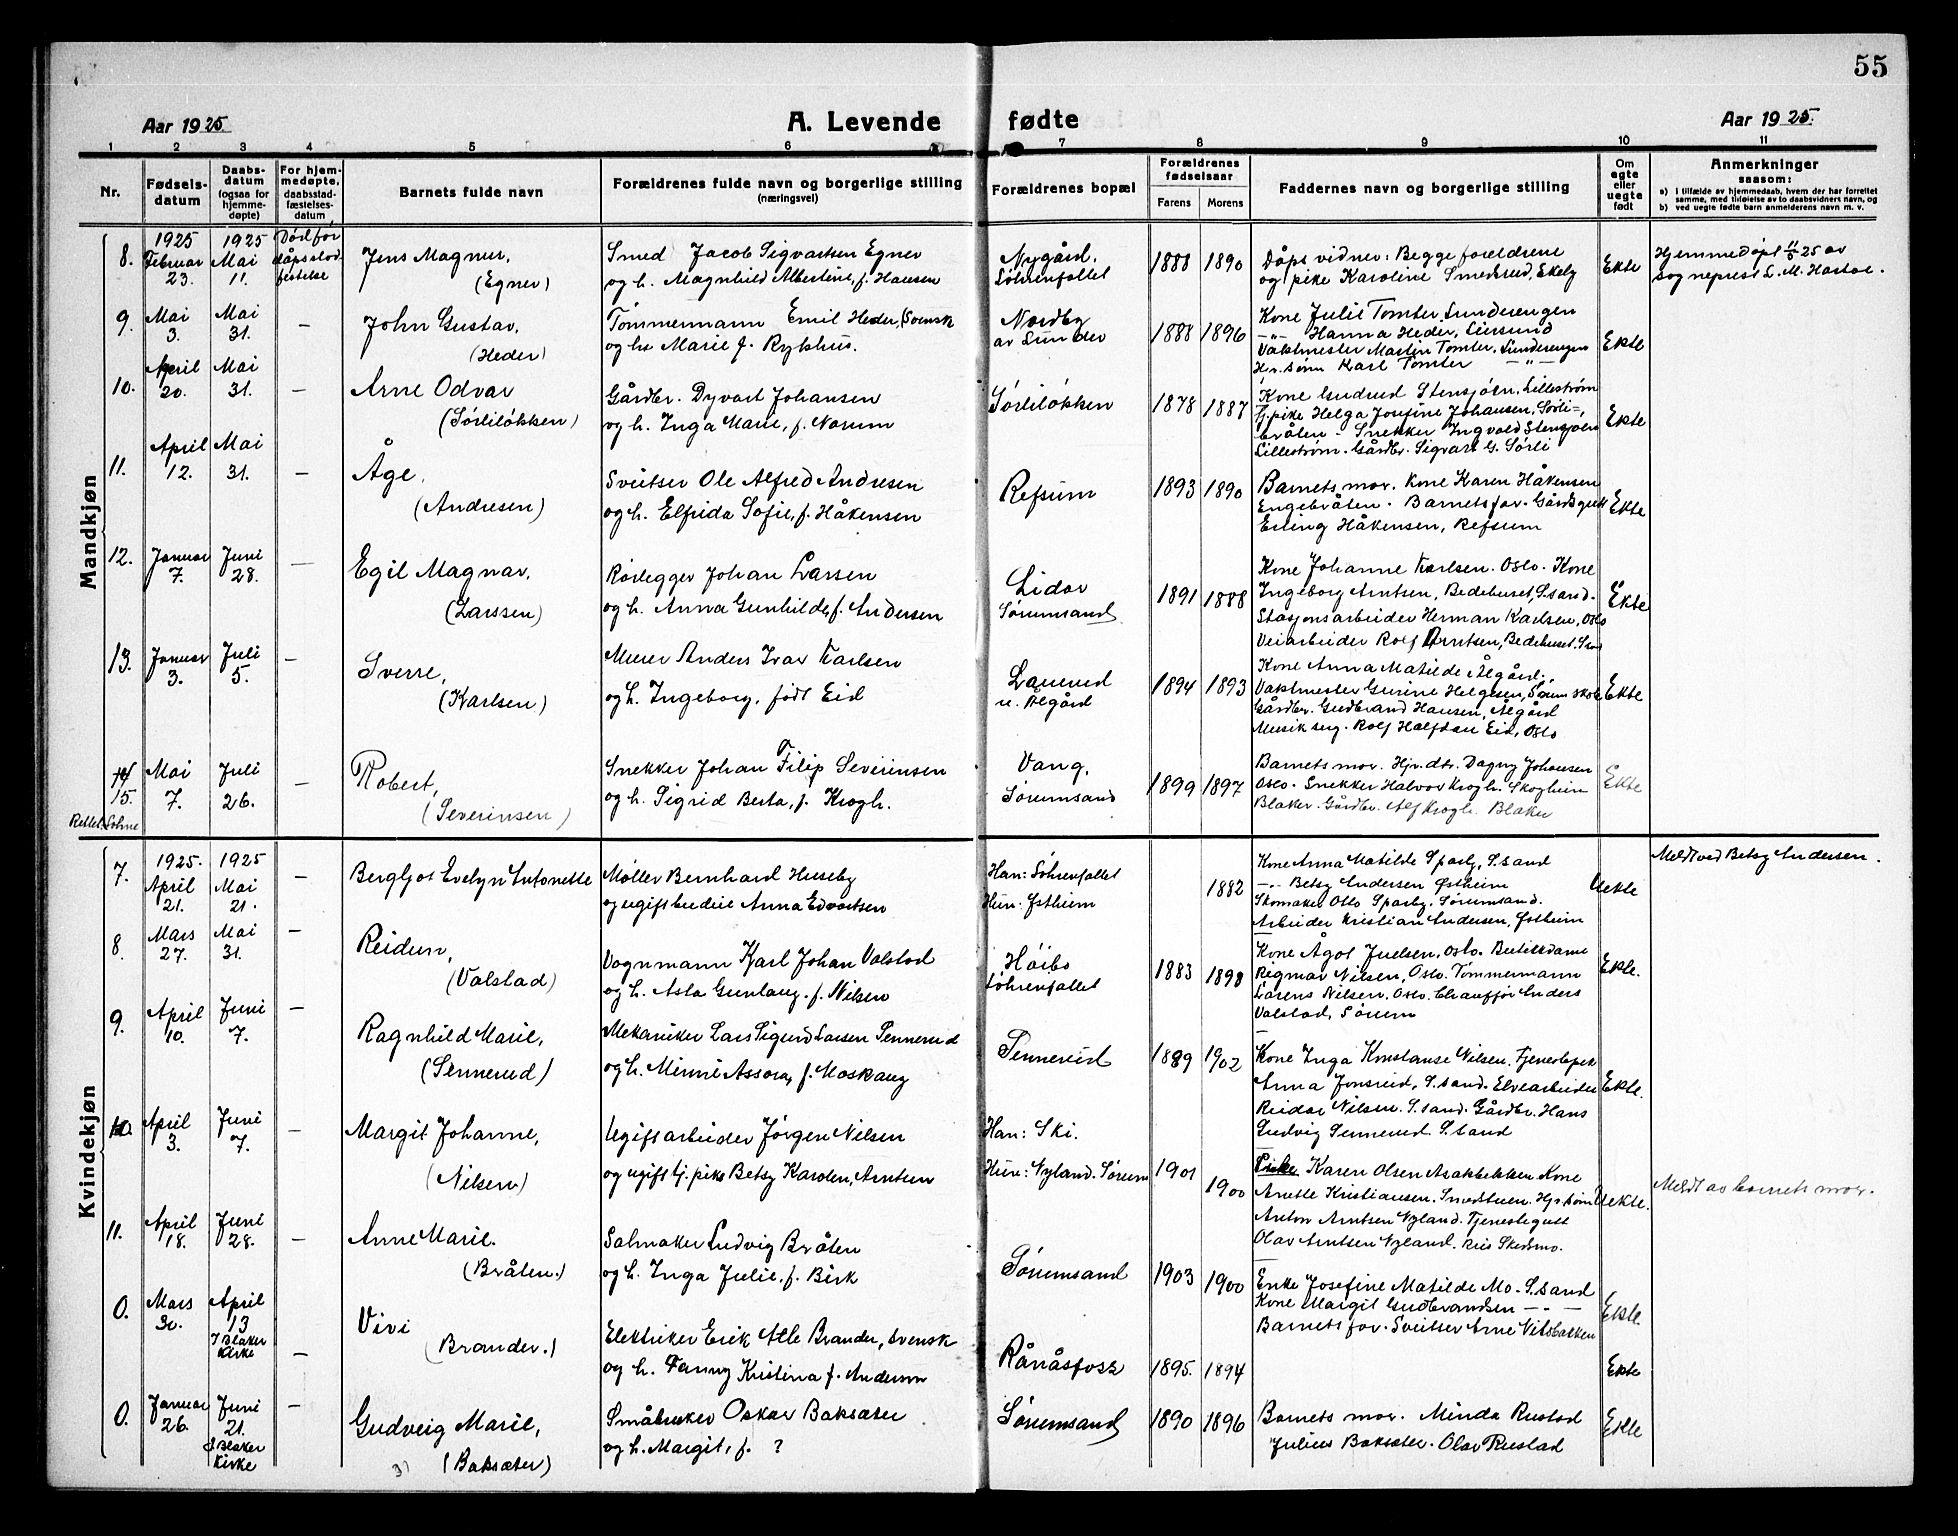 55
Aar 1925
A. Levende fødte
Aar 1925.
1 2 3 4 5 6 7 8 9 10 11
Nr.
Fødselsdatum
Daabsdatum (ogsaa for hjemmedøpte)
For hjemmedøpte, daabsstadfæstelsesdatum
Barnets fulde navn
Forældrenes fulde navn og borgerlige stilling
(næringsvei)
Forældrenes bopæl
Forældrenes fødselsaar
Farens Morens
Faddernes navn og borgerlig stilling
Om ægte eller uægte født
Anmerkninger
saasom:
a) i tilfælde av hjemmedaab, hvem der har forrettet samme, med tilføielse av to daabsvidners navn, og
b) ved uegte fødte barn anmelderens navn m. v.
Mandkjøn
8. 1925 Februar 23. 1925 Mai 11. Død før dåpsstadfestelse
Jens Magnus, (Egner)
Smed Jacob Sigvartsen Egner
og h. Magnhild Albertine, f. Hansen
Nygård, Sørhenfallet
1888 1890
Dåps vidner: Begge foreldrene
og pike Karoline Smedsrud, Ekely
Ekte
Hjemmedøpt 11/5 25 av
sogneprest L. M. Hastoe.
9. Mai 3. Mai 31. —
John Gustav, (Heder)
Tømmermann Emil Heder, (svensk
og hu Marie f. Rykhus.
Nordby av Sunder
1888 1896
Kone Julie Tomter, Sunderengen
-"- Hanna Heder, Eiersund
Vaktmester Martin Tomter, Sunderengen
Hr. sønn Karl Tomter -"-
Ekte
10. April 20. Mai 31. —
Arne Odvar (Sørliløkken)
Gårdbr. Dyvart Johansen
og h. Inga Marie, f. Norum
Sørliløkken
1878 1887
Kone Gudrud Stensjøen, Lillestrøm
Tj.pike Helga Josefine Johansen, Sørli-,
bråten - Snekker Ingvald Stensjøen
Lillestrøm. Gårdbr. Sigvart G. Sørli
Ekte
11. April 12. Mai 31. —
Åge, (Andresen)
Sveitser Ole Alfred Andresen
og h. Elfrida Sofie, f. Håkensen
Refsum
1893 1890
Barnets mor. Kone Karen Håkensen
Engebråten. Barnets far. Gårdsgutt
Erling Håkensen, Refsum
Ekte
12. Januar 7. Juni 28. —
Egil Magnar, (Larssen)
Rørlegger Johan Larsen
og h. Anna Gunhilde, f. Andersen
Lidar Sørumsand
1891 1888
Kone Johanne Karlsen. Oslo. Kone
Ingeborg Arntsen, Bedehuset, S.sand.
Stasjonsarbeider Herman Karlsen, Oslo
Veiarbeider Rolf Arntsen, Bedehuset.
Ekte
13. Januar 3. Juli 5. —
Sverre, (Karlsen)
Murer Anders Ivar Karlsen
og h. Ingeborg, født Eid
u. Ålgård
1894 1893
Kone Anna Matilde Ålgård,
Vaktmester Gurine Helgesen, Sørum skole
Gårdbr. Gudbrand Hansen, Ålgård
Musik serg. Rolf Halfdan Eid, Oslo
Ekte
14 15. Rettet. Lohne Mai 7. Juli 26. —
Robert, (Severinsen)
Snekker Johan Filip Severinsen
og h. Sigrid Berta, f. Krogh.
Vang, Sørumsand
1899 1897
Barnets mor. Hjv. dtr. Dagny Johansen
Oslo. Snekker Halvor Krogh. Skogheim
Blaker. Gårdbr. Alf Krogh. Blaker
Ekte
Kvindekjøn
7. 1925. April 21. 1925 Mai 21. —
Bergljot Evelyn Antonette
Møller Bernhard Huseby
og ugift budeie Anna Edvartsen
Han: Sørhenfallet
Hun: Østheim
1882
Kone Anna Matilde Sparby, S.sand
-"- Betsy Andersen Østheim
Skomaker Otto Sparby, Sørumsand.
Arbeider Kristian Andersen, Østheim
Uekte
Meldt ved Betsy Andersen.
8. Mars 27. Mai 31. —
Reidun, (Valstad)
Vognmann Karl Johan Valstad
og h. Asta Gunlaug, f. Nilsen
Høibo Sørhenfallet
1883 1898
Kone Ågot Juelsen, Oslo. Butikkdame
Rigmor Nilsen, Oslo. Tømmermann
Larens Nilsen, Oslo. Chauffør Anders
Valstad, Sørum
Ekte.
9. April 10. Juni 7. —
Ragnhild Marie, (Sennerud)
Mekaniker Lars Sigurd Larsen Sennerud
og h. Minni Assora, f. Moskaug
Sennerud
1889 1902
Kone Inga Konstanse Nilsen. Tjenestepik
Anna Jonsrud, S.sand. Elvearbeider
Reidar Nilsen. S.sand. Gårdbr. Hans
Ludvig Sennerud S.sand
Ekte.
10. April 3. Juni 7. —
Margit Johanne, (Nilsen)
Ugift arbeider Jørgen Nilsen
og ugift tj. pike Betsy Karoline, Arntsen
Han: Ski.
Hun: Nyland. Sørum
1901 1900
Pike Karen Olsen Asakbakken Kone
Anette Kristiansen. Smedstuen. Hjv. sønn
Anton Arntsen Nyland. Tjenestegutt
Olav Arntsen Nyland. Riis Skedsmo.
Uekte.
Meldt av barnets mor.
11. April 18. Juni 28. —
Anne Marie. (Bråten.)
Salmaker Ludvig Bråten
og h. Inga Julie, f. Birk
Sørumsand
1903 1900
Enke Josefine Matilde Mo. S.sand
Kone Margit Gudbrandsen -"-
Barnets far. Sveitser Arne Nitsbakken
Ekte
0. Mars 30. April 13 I Blaker Kirke —
Vivi (Brander.)
Elektriker Erik Atle Brander, svensk
og h. Fanny Kristina f. Anderson
Rånåsfoss
1895. 1894
Ekte
0. Januar 26. Juni 21. I Blaker Kirke —
Gudveig Marie, (Baksæter)
Småbruker Oskar Baksæter
og h. Margit, f. ?
Sørumsand
1890 1896
Barnets mor. Minda Rustad
Julius Baksæter. Olav Rustad
Ekte
3)